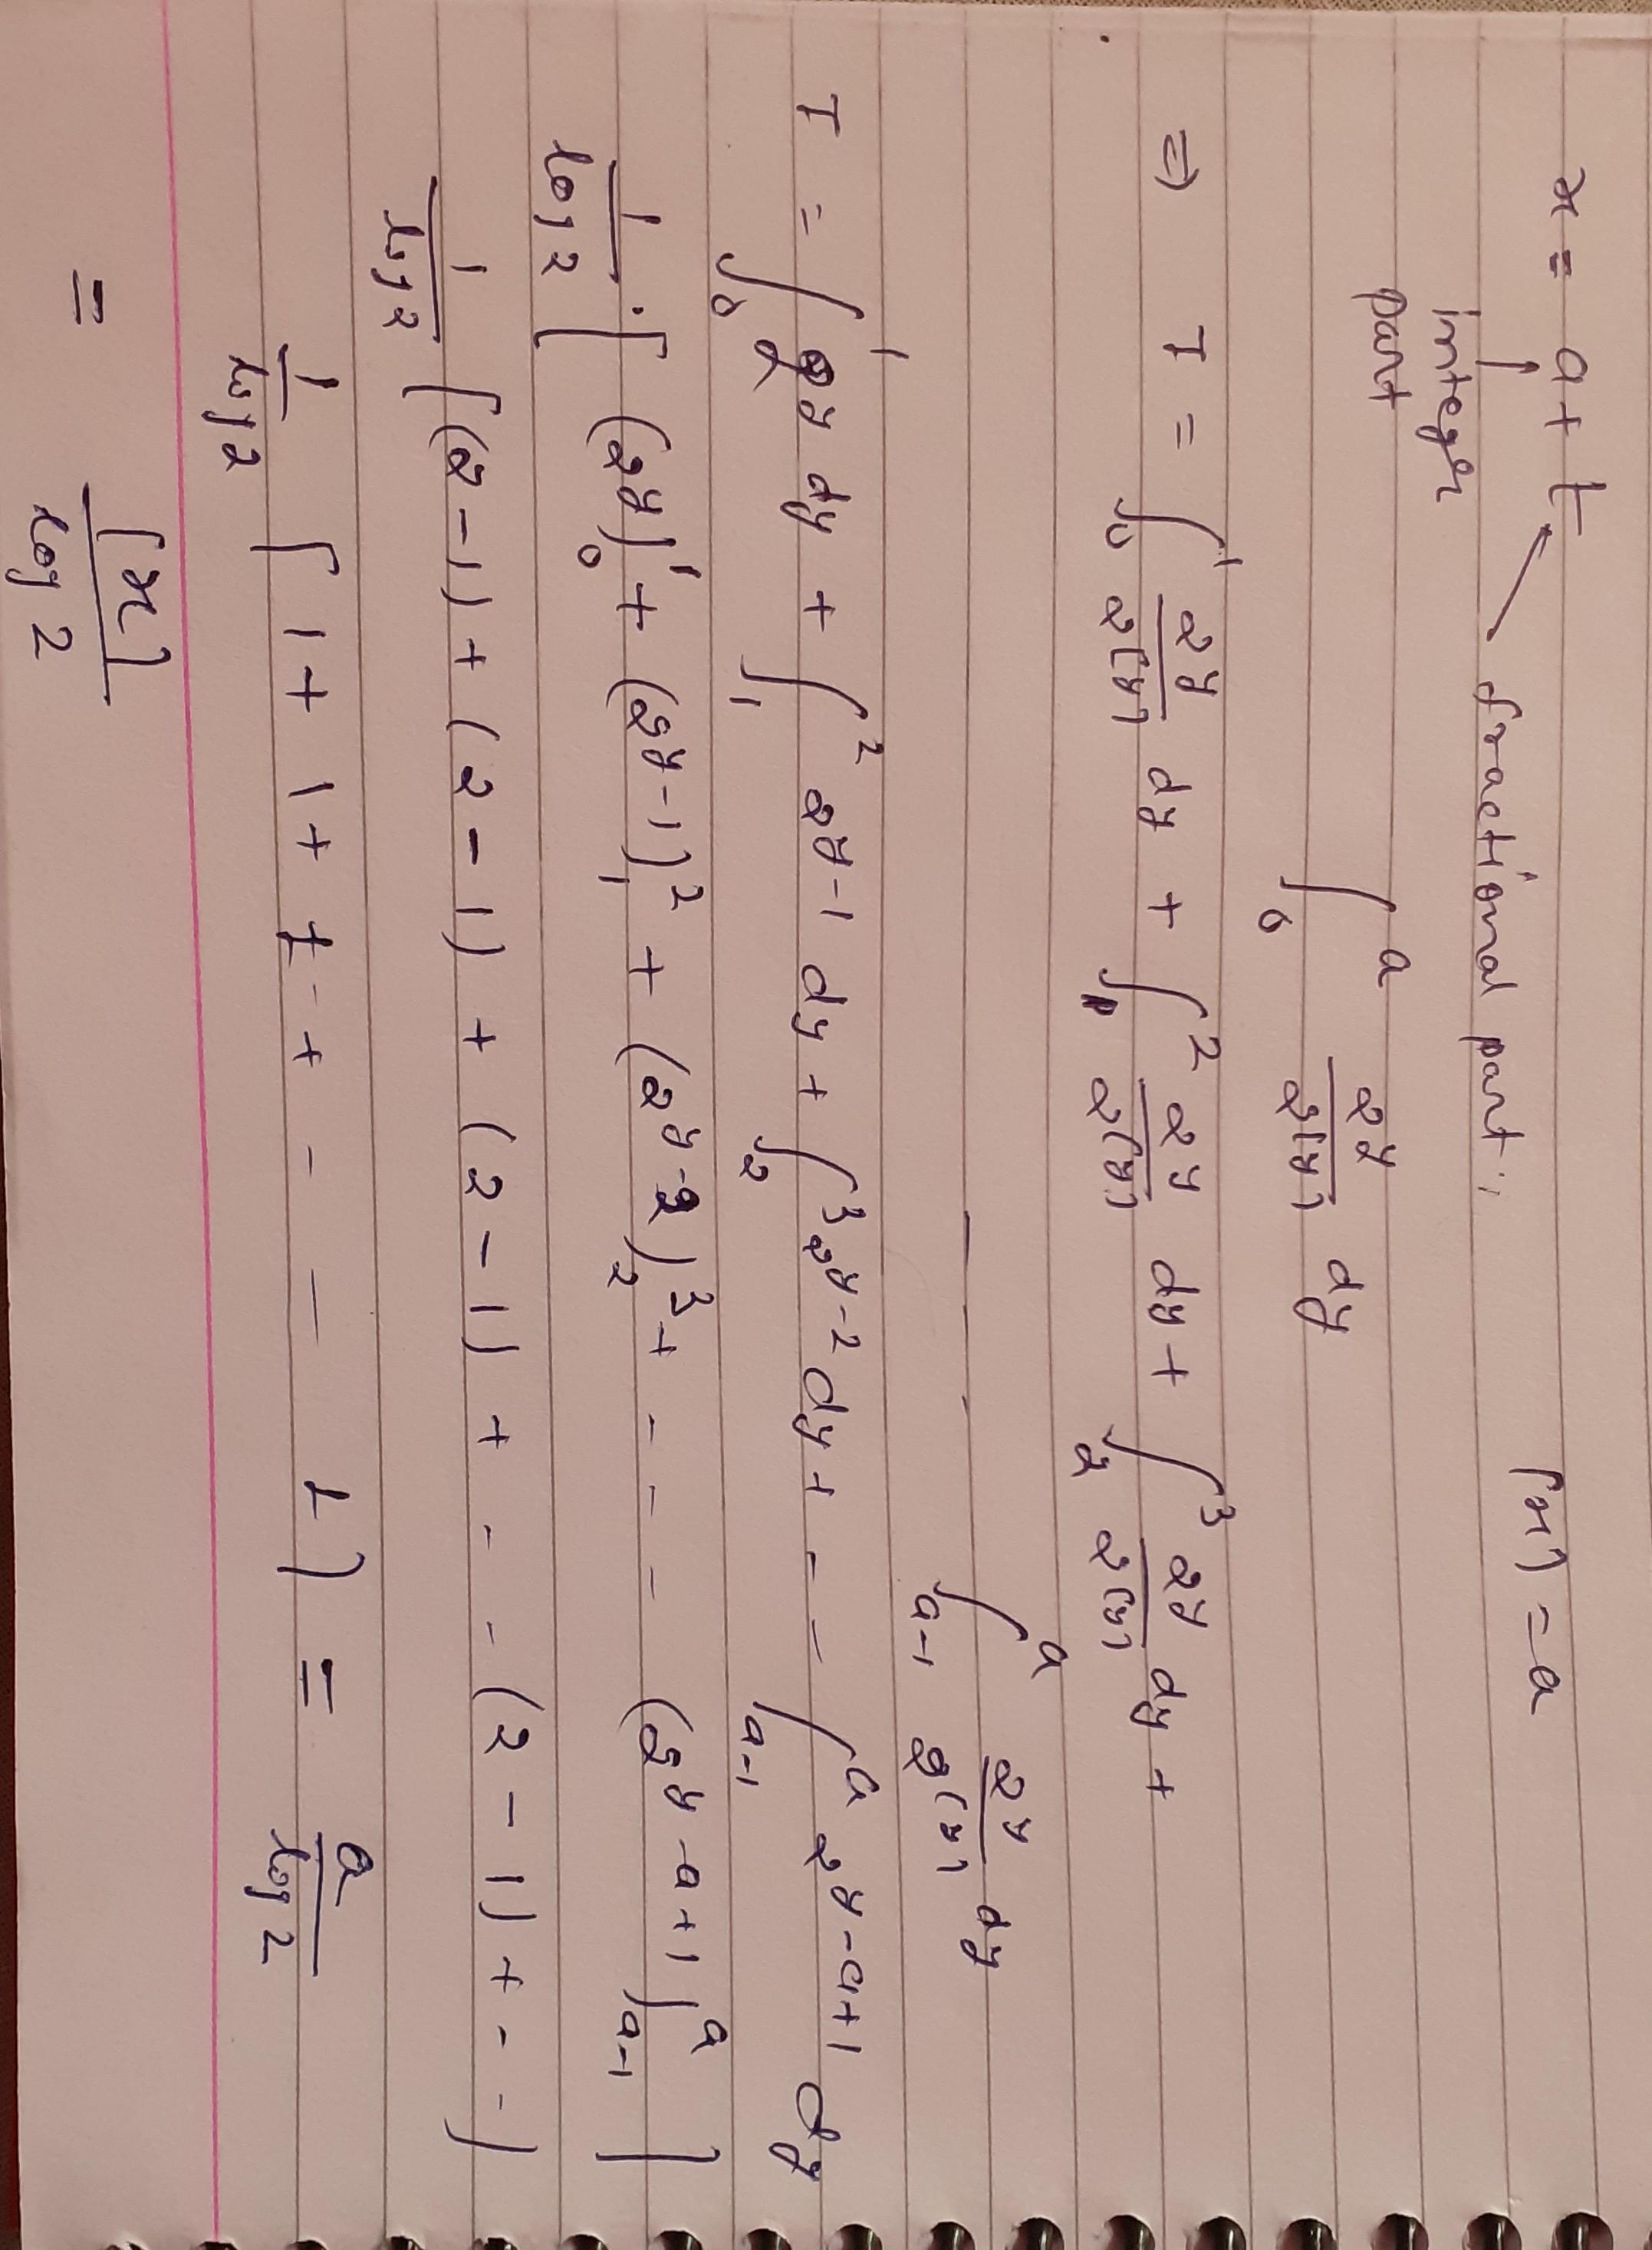 x = a + t [x] = a
integer part fractional part.
∫₀^a 2^y / 2^[y] dy
⇒ I = ∫₀^1 2^y / 2^[y] dy + ∫₁^2 2^y / 2^[y] dy + ∫₂^3 2^y / 2^[y] dy +
— — ∫_{a-1}^a 2^y / 2^[y] dy
I = ∫₀^1 2^y dy + ∫₁^2 2^{y-1} dy + ∫₂^3 2^{y-2} dy + - - ∫_{a-1}^a 2^{y-a+1} dy
1/log 2 [ (2^y)₀^1 + (2^{y-1})₁^2 + (2^{y-2})₂^3 + - - - (2^{y-a+1})_{a-1}^a ]
1/log 2 [ (2-1) + (2-1) + (2-1) + - - - (2-1) + - - ]
1/log 2 [ 1 + 1 + 1 - + - — 1 ] = a/log 2
= [x]/log 2